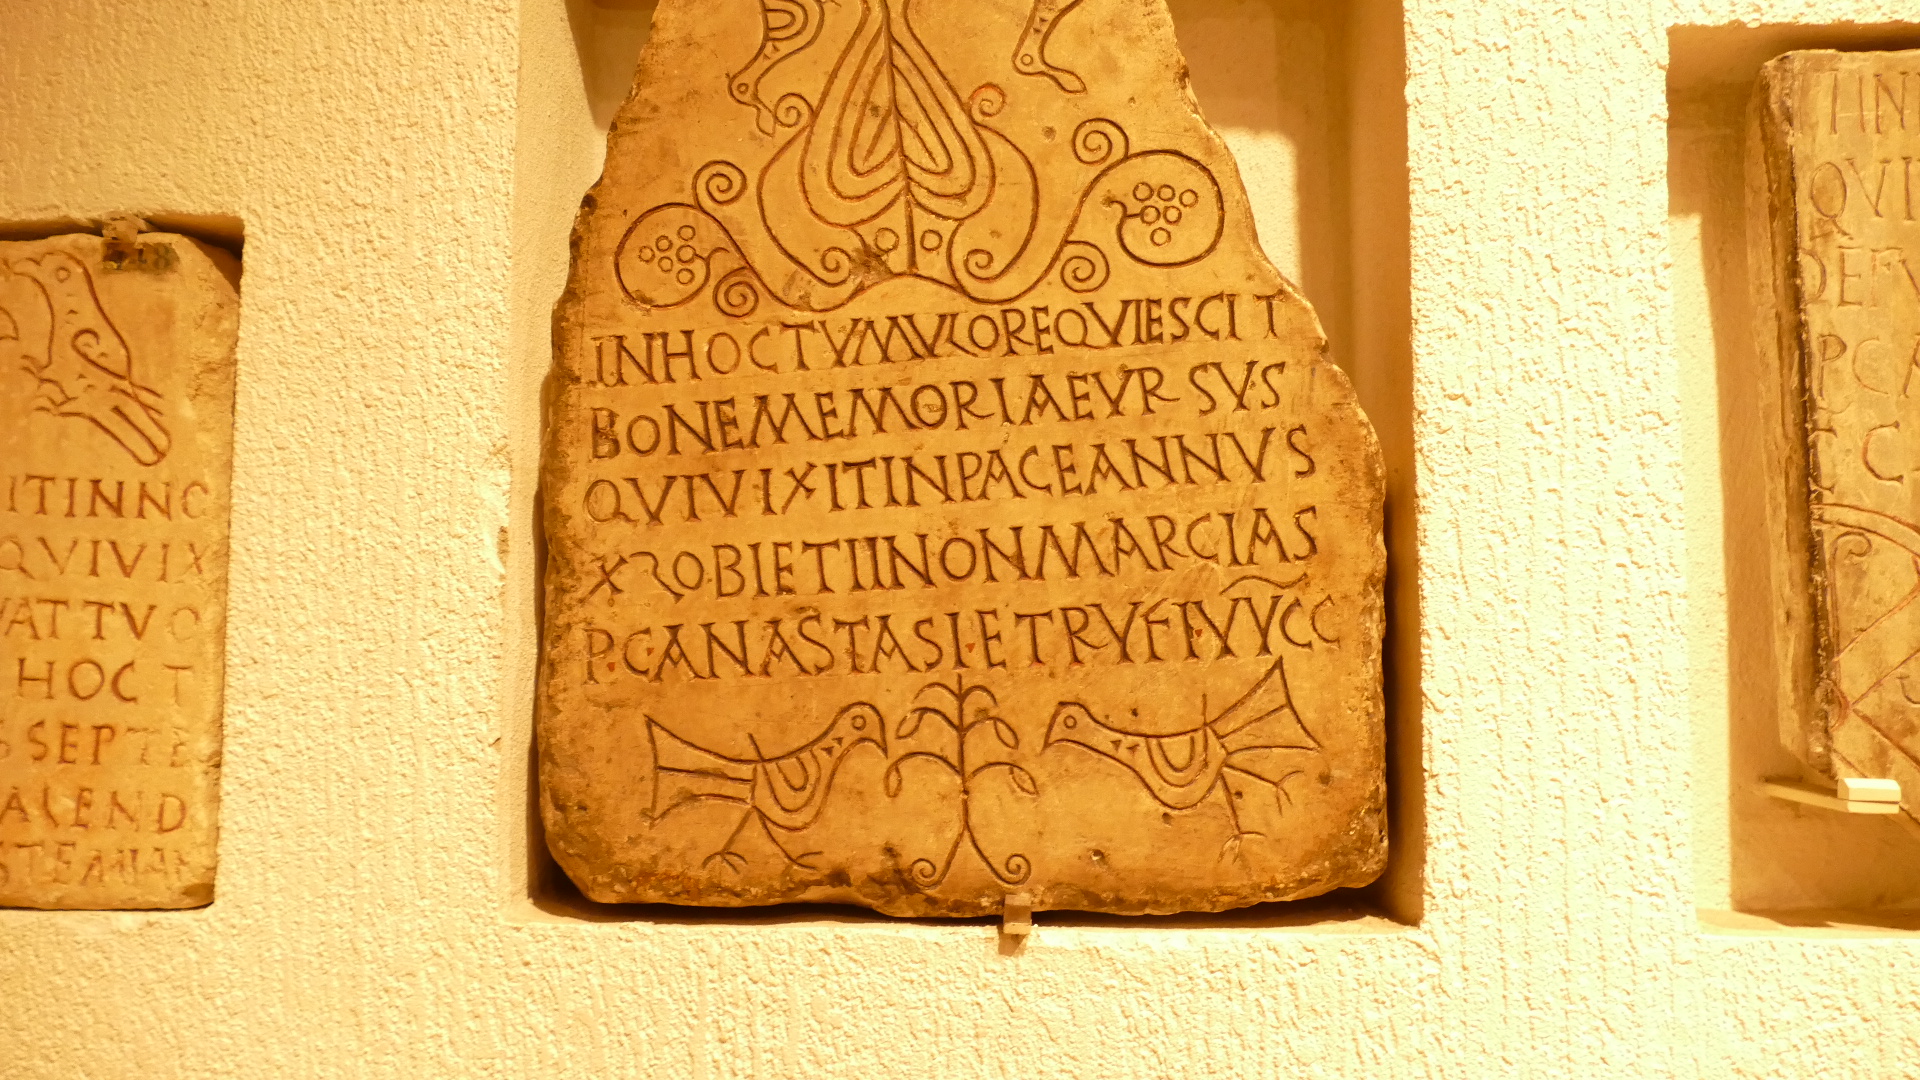 ITINNO
QVIVIX
VATTVO
HOCT
SSEPTE
ALEND
INHOCTVMVLOREQVIESCIT
BONEMEMORIAEVRSVS
QVIVIXITINPACEANNVS
XROBIETIINONMARCIAS
P.CANASTASIETRVFIVVCC
QVI
DEFV